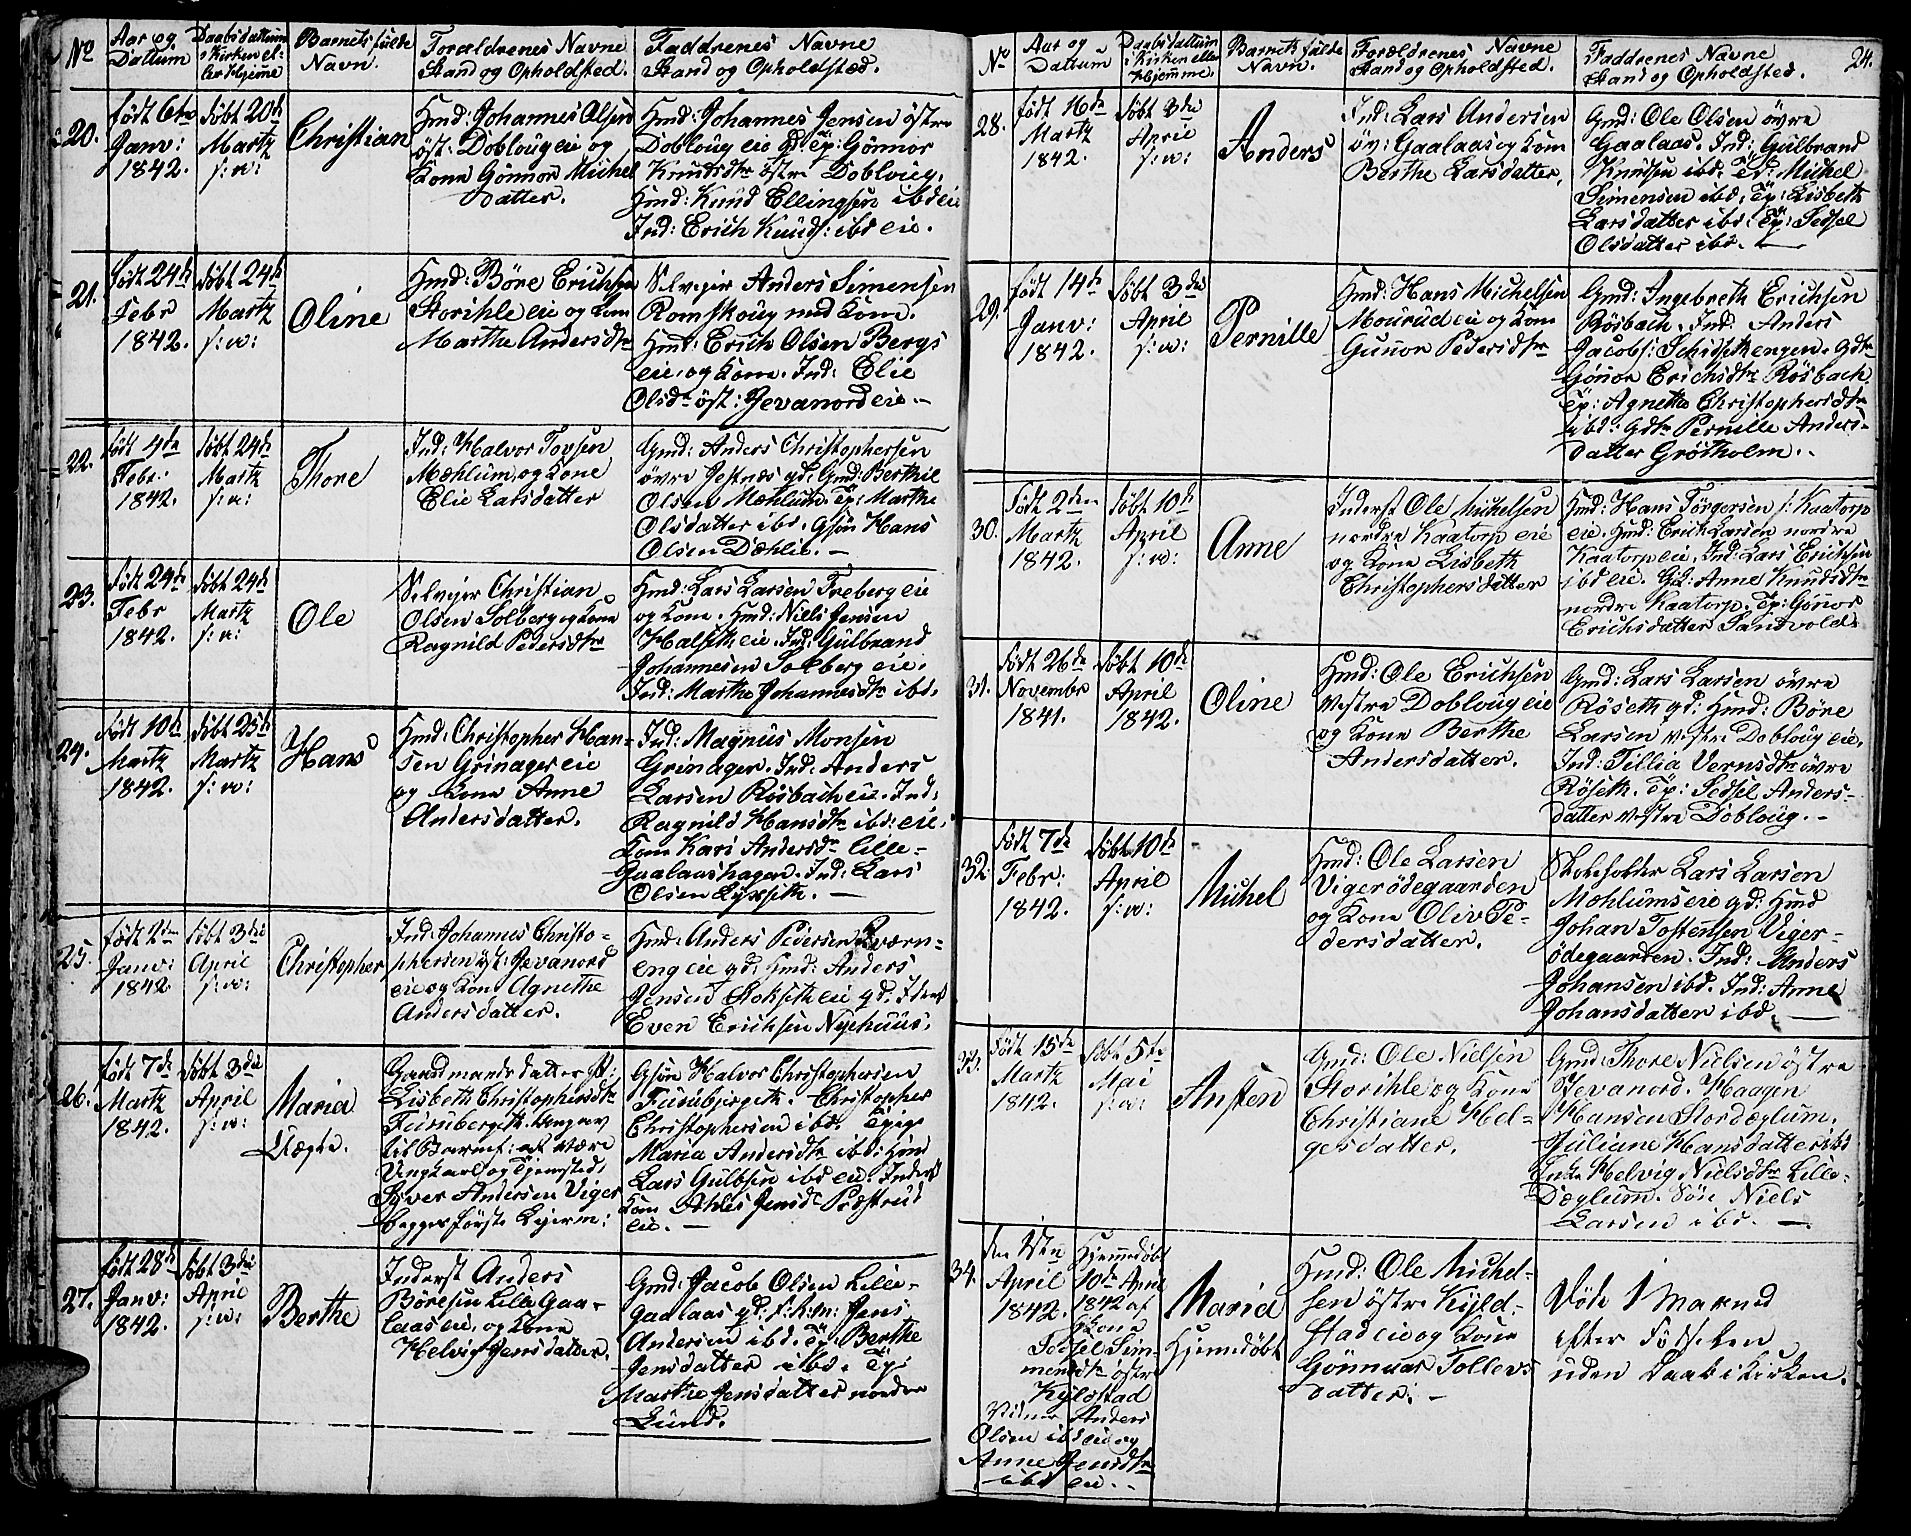 No
Aar og
Dattum
Daabsdattum
i Kirken el-
ler Hjeme
Barnets fulde
Navn.
Forældrenes Navne
Stand og Opholdsted.
Faddrenes Navne
Stand og Opholdsted.
20.
født 6te
Janv:
1842.
døbt 20d
Martz
s: v:
Christian
Hmd: Johannes Olsen
øst: Dobloug eie og
Kone Gønnor Michel
datter.
Hmd: Johannes Jensen østre
Dobloug eie gd Tp: Gønnor
Knudsdtr østre Dobloug.
Hmd: Knud Ellingsen ibd eie
Ind: Erich Knuds: ibd eie.
21.
født 24d
Febr
1842.
døbt 24d
Martz
s: v:
Oline
Hmd: Børe Erichsen
Storihle eie og Kone
Marthe Andersdtr
Selveier Anders Simensen
Romskoug med Kone.
Hmd: Erich Olsen Bergs
eie, og Kone. Ind: Elie
Olsdtr øst: Jevanord eie.-
22.
født 4de
Febr.
1842.
døbt 24d
Martz
s: v:
Thore
Ind: Halvor Torsen
Mæhlum, og Kone
Elie Larsdatter
Gmd: Anders Christophersen
øvre Jesnæs gd: Gmd: Berthil
Olsen Mæhlum. Tp: Marthe
Olsdatter ibd. Gsøn Hans
Olsen Dæhlie.-
23.
født 24d
Febr
1842.
døbt 24d
Martz
s: v:
Ole
Selveier Christian
Olsen Solberg og Kone
Ragnild Pedersdtr
Hmd: Lars Larsen Freberg eie
og Kone. Hmd: Niels Jensen
Halseth eie. Ind: Gulbrand
Johannesen Solberg eie.
Ind: Marthe Johannesdtr ibd.
24.
født 10d
Martz
1842.
døbt 25d
Martz
s: v:
Hans
Hmd: Christopher Han-
sen Grinager eie
og Kone Anne
Andersdatter.
Ind: Magnus Monsen
Grinager. Ind: Anders
Larsen Rosbach eie. Ind:
Ragnild Hansdtr ibd: eie.
Kone Kari Andersdtr Lille-
Gaalaashagen. Ind: Lars
Olsen Lyxseth.-
25.
født 2den
Janv:
1842
døbt 3die
April
s: v:
Christopher
Ind: Johannes Christo-
phersen øst: Jevanord
eie og Kone Agnethe
Andersdatter.
Hmd: Anders Pedersen Qværn-
eng eie gd: Hmd: Anders
Jensen Stokseth eie gd. Iderst
Even Erichsen Nyehuus.
26.
født 7de
Martz
1842.
døbt 3die
April
s: v:
Maria
Uægte.
Gaardmands datter
Lisbeth Christophersdtr
Furuberget. Angav
til Barnef: at være
Ungkarl og Tjenested,
Syver Andersen Viger
begges første Lejerm:
Gsøn Halvor Christophersen
Furubjerget. Christopher
Christophersen ibd. Tpige
Maria Andersdtr ibd: Hmd
Lars Gulbsen ibd eie. Inderst
Kone Ahles Jensdtr Pæstrud
eie.-
27.
født 28d
Janv:
1842.
døbt 3die
April
s: v:
Berthe
Inderst Anders
Børesen Lille Gaa-
laas eie, og Kone
Helvig Jensdatter.
Gmd: Jacob Olsen Lille-
Gaalaas gd: f. K: Sn: Jens
Andersen ibd. Tp: Berthe
Jensdatter ibd. Tp:
Marthe Jensdatter nordre
Lund.
No
Aar og
Dattum
Daabsdattum
i Kirken eller
Hjemme.
Barnets fulde
Navn.
Forældrenes Navne
Stand og Opholdsted.
Faddrenes Navne
Stand og Opholdsted.
24.
28.
født 16de
Martz
1842.
døbt 3die
April
s: v:
Anders
Ind: Lars Andersen
øv: Gaalaas og Kone
Berthe Larsdatter.
Gmd: Ole Olsen øvre
Gaalaas. Ind: Gulbrand
Knudsen ibd. Td: Michel
Simensen ibd: Tp: Lisbeth
Larsdatter ibd: Tp: Sedsel
Olsdatter ibd.-
29.
født 14d
Janv:
1842.
døbt 3die
April
s: v:
Pernille
Hmd: Hans Michelsen
Mourud eie og Kone
Gunnor Pedersdtr
Gmd: Ingebreth Erichsen
Rosbach. Ind: Anders
Jacobs: Schidsethengen. gdtr
Gønor Erichsdtr Rosbach
Tp: Agnethe Christophersdtr
ibd: gdtr Pernille Anders-
datter Grøtholm.
30.
født 2den
Martz
1842.
døbt 10d
April
s: v:
Anne
Inderst Ole Michelsen
nordre Kaatorp eie
og Kone Lisbeth
Christophersdatter
Hmd: Hans Torgersen s: Kaatorp
eie. Hmd: Erich Larsen nordre
Kaatorp eie. Ind: Lars Erichsen
ibd eie. Gd: Anne Knudsdtr
nordre Kaatorp. Tp: Gønnor
Erichsdatter Sandvold.
31.
født 26de
Novembr
1841.
døbt 10de
April
1842.
Oline
Hmd: Ole Erichsen
vestre Dobloug eie
og Kone Berthe
Andersdatter.
Gmd: Lars Larsen øvre
Røseth gd: Hmd: Børe
Larsen vestre Dobloug eie.
Ind: Tillia Vernsdtr øvre
Røseth. Tp: Sedsel Anders-
datter vestre Dobloug.-
32.
født 7de
Febr:
1842.
døbt 10de
April
s: v:
Michel
Hmd: Ole Larsen
Vigerødegaarden
og Kone Oliv Pe-
dersdatter.
Skoleholder Lars Larsen
Mohlums eie gd: Hmd
Johan Tostensen Viger-
ødegaarden. Ind: Anders
Johansen ibd. Ind: Anne
Johansdatter ibd.-
33.
født 15de
Martz
1842.
døbt 5te
Mai
s: v:
Austen
Gmd: Ole Nielsen
Storihle og Kone
Christiane Hel-
gesdatter.
Gmd: Thore Nielsen østre
Jevanord. Haagen
Hansen Stordeglum.
Juliane Hansdatter ibd
Enke Helvig Nielsdtr Lille-
Deglum. Søn Niels
Larsen ibd.-
34.
den 1ste
April
1842.
Hjemmedøbt
10de April
1842 af
Gkone
Sedsel Sim-
mensdtr østre
Kyldstad
Vidner Anders
Olsen ibd eie og
Anne Jensdtr
ibd eie.-
Maria
Hjemmedøbt
Hmd: Ole Michel-
sen østre Kyld-
stad eie og Kone
Gønnuar Tollevs
datter.-
Døde 1 Maaned
efter Fødselen
uden Daab i Kirken.